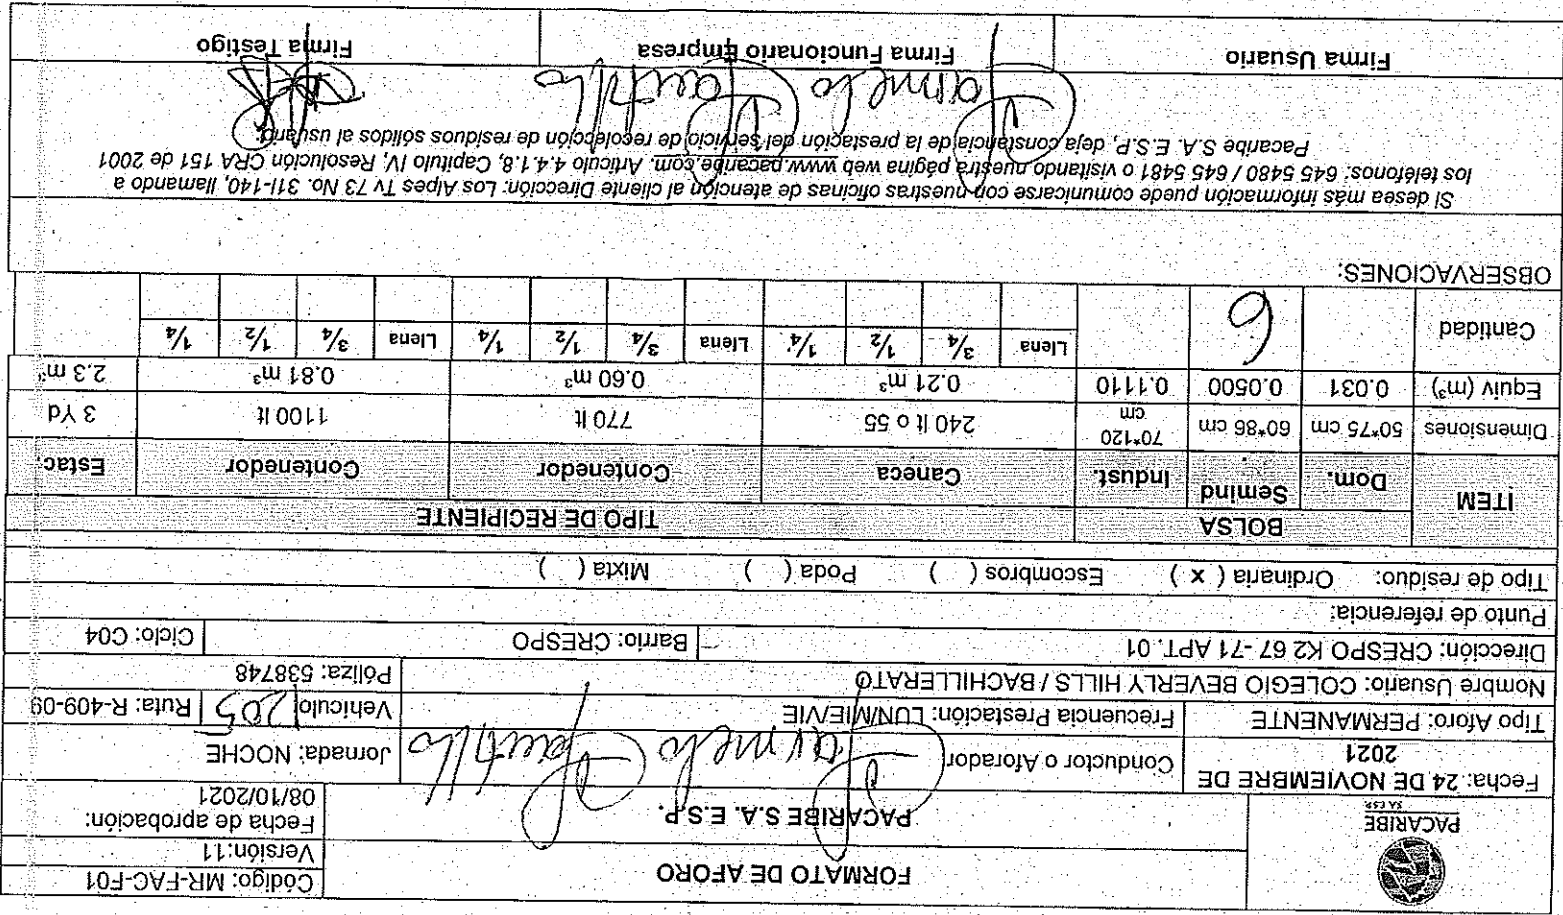 PACARIBE
S.A. E.S.P.
FORMATO DE AFORO
PACARIBE S.A. E.S.P.
Código: MR-FAC-F01
Versión:11
Fecha de aprobación:
08/10/2021
Fecha: 24 DE NOVIEMBRE DE 2021
Conductor o Aforador Carmelo Castillo
Jornada: NOCHE
Tipo Aforo: PERMANENTE
Frecuencia Prestación: LUN/MIE/VIE
Vehiculo 1205
Ruta: R-409-09
Nombre Usuario: COLEGIO BEVERLY HILLS / BACHILLERATO
Póliza: 538748
Dirección: CRESPO K2 67 -71 APT. 01
Barrio: CRESPO
Ciclo: C04
Punto de referencia:
Tipo de residuo: Ordinaria ( x ) Escombros ( ) Poda ( ) Mixta ( )
ITEM BOLSA TIPO DE RECIPIENTE
Dom. Semind. Indust. Caneca Contenedor Contenedor Estac.
Dimensiones 50*75 cm 60*86 cm 70*120 cm 240 lt o 55 770 lt 1100 lt 3 Yd
Equiv (m³) 0.031 0.0500 0.1110 0.21 m³ 0.60 m³ 0.81 m³ 2.3 m³
Cantidad 6 Llena ¾ ½ ¼ Llena ¾ ½ ¼ Llena ¾ ½ ¼
OBSERVACIONES:
Si desea más información puede comunicarse con nuestras oficinas de atención al cliente Dirección: Los Alpes Tv 73 No. 31I-140, llamando a
los teléfonos: 645 5480 / 645 5481 o visitando nuestra página web www.pacaribe.com. Articulo 4.4.1.8, Capitulo IV, Resolución CRA 151 de 2001
Pacaribe S.A. E.S.P, deja constancia de la prestación del servicio de recolección de residuos sólidos al usuario.
Carmelo Castillo
Firma Usuario
Firma Funcionario Empresa
Firma Testigo